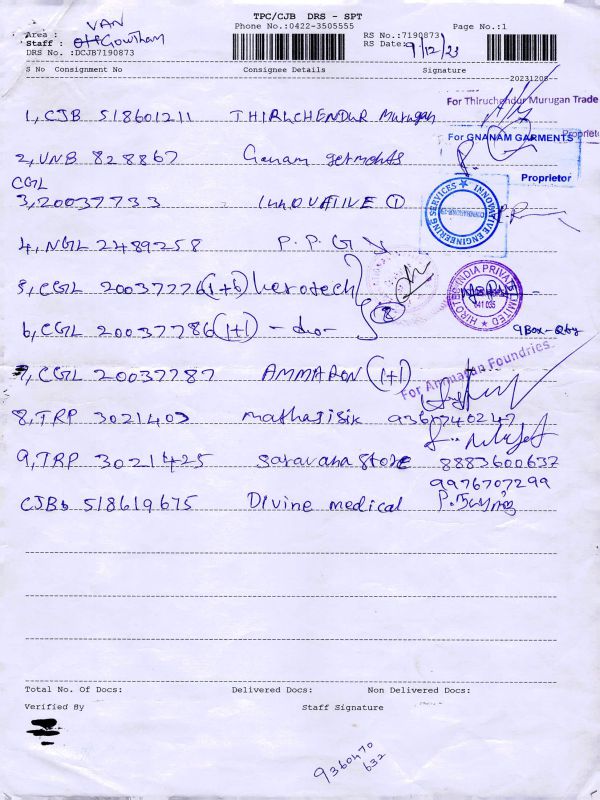 TPC/CJB DRS - SPT
Phone No.:0422-3505555
Page No.:1
Area : VAN
Staff : Gowtham
DRS No. :DCJB7190873
RS No.:7190873
RS Date: 9/12/23
S No Consignment No Consignee Details Signature
20231208
1, CJB 518601211 THIRUCHENDUR Murugan
For Thiruchendur Murugan Trade
Proprieto
2, VNB 828867 Ganam germents
For GNANAM GARMENTS
Proprietor
CGL
3, 20037733 INNOVATIVE ①
INNOVATIVE ENGINEERING SERVICES
4, NGL 2489258 P. P. G
5, CGL 20037776 (1+6) herotech
HIROTEC INDIA PRIVATE LIMITED
641 035
8
6, CGL 20037786 (1+1) - do -
9 Box - Qty
7, CGL 20037787 AMMARON (1+1)
For Ammarun Foundries
8, TRP 3021403 mathajisik
9, TRP 3021425 Saravana Store 8883600637
9976707299
CJBb 518619675 Divine medical
Total No. Of Docs: Delivered Docs: Non Delivered Docs:
Verified By Staff Signature
9360470
632